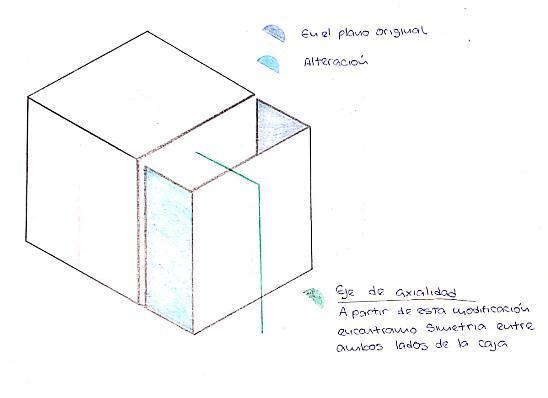 En el plano original
Alteración
Eje de axialidad
A partir de esta modificación
encontramo simetria entre
ambos lados de la caja